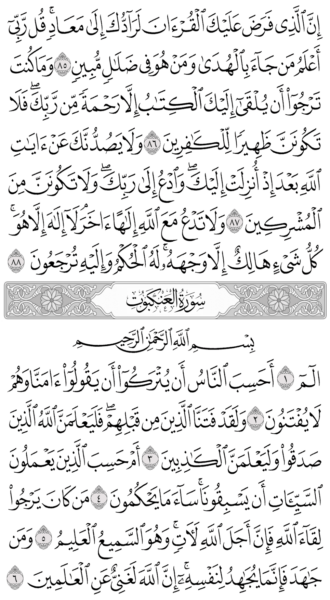 إِنَّ ٱلَّذِى فَرَضَ عَلَيْكَ ٱلْقُرْءَانَ لَرَآدُّكَ إِلَىٰ مَعَادٍ ۚ قُل رَّبِّىٓ
أَعْلَمُ مَن جَآءَ بِٱلْهُدَىٰ وَمَنْ هُوَ فِى ضَلَٰلٍ مُّبِينٍ ٨٥ وَمَا كُنتَ
تَرْجُوٓا۟ أَن يُلْقَىٰٓ إِلَيْكَ ٱلْكِتَٰبُ إِلَّا رَحْمَةً مِّن رَّبِّكَ ۖ فَلَا
تَكُونَنَّ ظَهِيرًا لِّلْكَٰفِرِينَ ٨٦ وَلَا يَصُدُّنَّكَ عَنْ ءَايَٰتِ
ٱللَّهِ بَعْدَ إِذْ أُنزِلَتْ إِلَيْكَ ۖ وَٱدْعُ إِلَىٰ رَبِّكَ ۖ وَلَا تَكُونَنَّ مِنَ
ٱلْمُشْرِكِينَ ٨٧ وَلَا تَدْعُ مَعَ ٱللَّهِ إِلَٰهًا ءَاخَرَ ۘ لَآ إِلَٰهَ إِلَّا هُوَ ۚ
كُلُّ شَىْءٍ هَالِكٌ إِلَّا وَجْهَهُۥ ۚ لَهُ ٱلْحُكْمُ وَإِلَيْهِ تُرْجَعُونَ ٨٨
سُورَةُ العَنكَبُوت
بِسْمِ ٱللَّهِ ٱلرَّحْمَٰنِ ٱلرَّحِيمِ
الٓمٓ ١ أَحَسِبَ ٱلنَّاسُ أَن يُتْرَكُوٓا۟ أَن يَقُولُوٓا۟ ءَامَنَّا وَهُمْ
لَا يُفْتَنُونَ ٢ وَلَقَدْ فَتَنَّا ٱلَّذِينَ مِن قَبْلِهِمْ ۖ فَلَيَعْلَمَنَّ ٱللَّهُ ٱلَّذِينَ
صَدَقُوا۟ وَلَيَعْلَمَنَّ ٱلْكَٰذِبِينَ ٣ أَمْ حَسِبَ ٱلَّذِينَ يَعْمَلُونَ
ٱلسَّيِّـَٔاتِ أَن يَسْبِقُونَا ۚ سَآءَ مَا يَحْكُمُونَ ٤ مَن كَانَ يَرْجُوا۟
لِقَآءَ ٱللَّهِ فَإِنَّ أَجَلَ ٱللَّهِ لَءَاتٍ ۚ وَهُوَ ٱلسَّمِيعُ ٱلْعَلِيمُ ٥ وَمَن
جَٰهَدَ فَإِنَّمَا يُجَٰهِدُ لِنَفْسِهِۦٓ ۚ إِنَّ ٱللَّهَ لَغَنِىٌّ عَنِ ٱلْعَٰلَمِينَ ٦